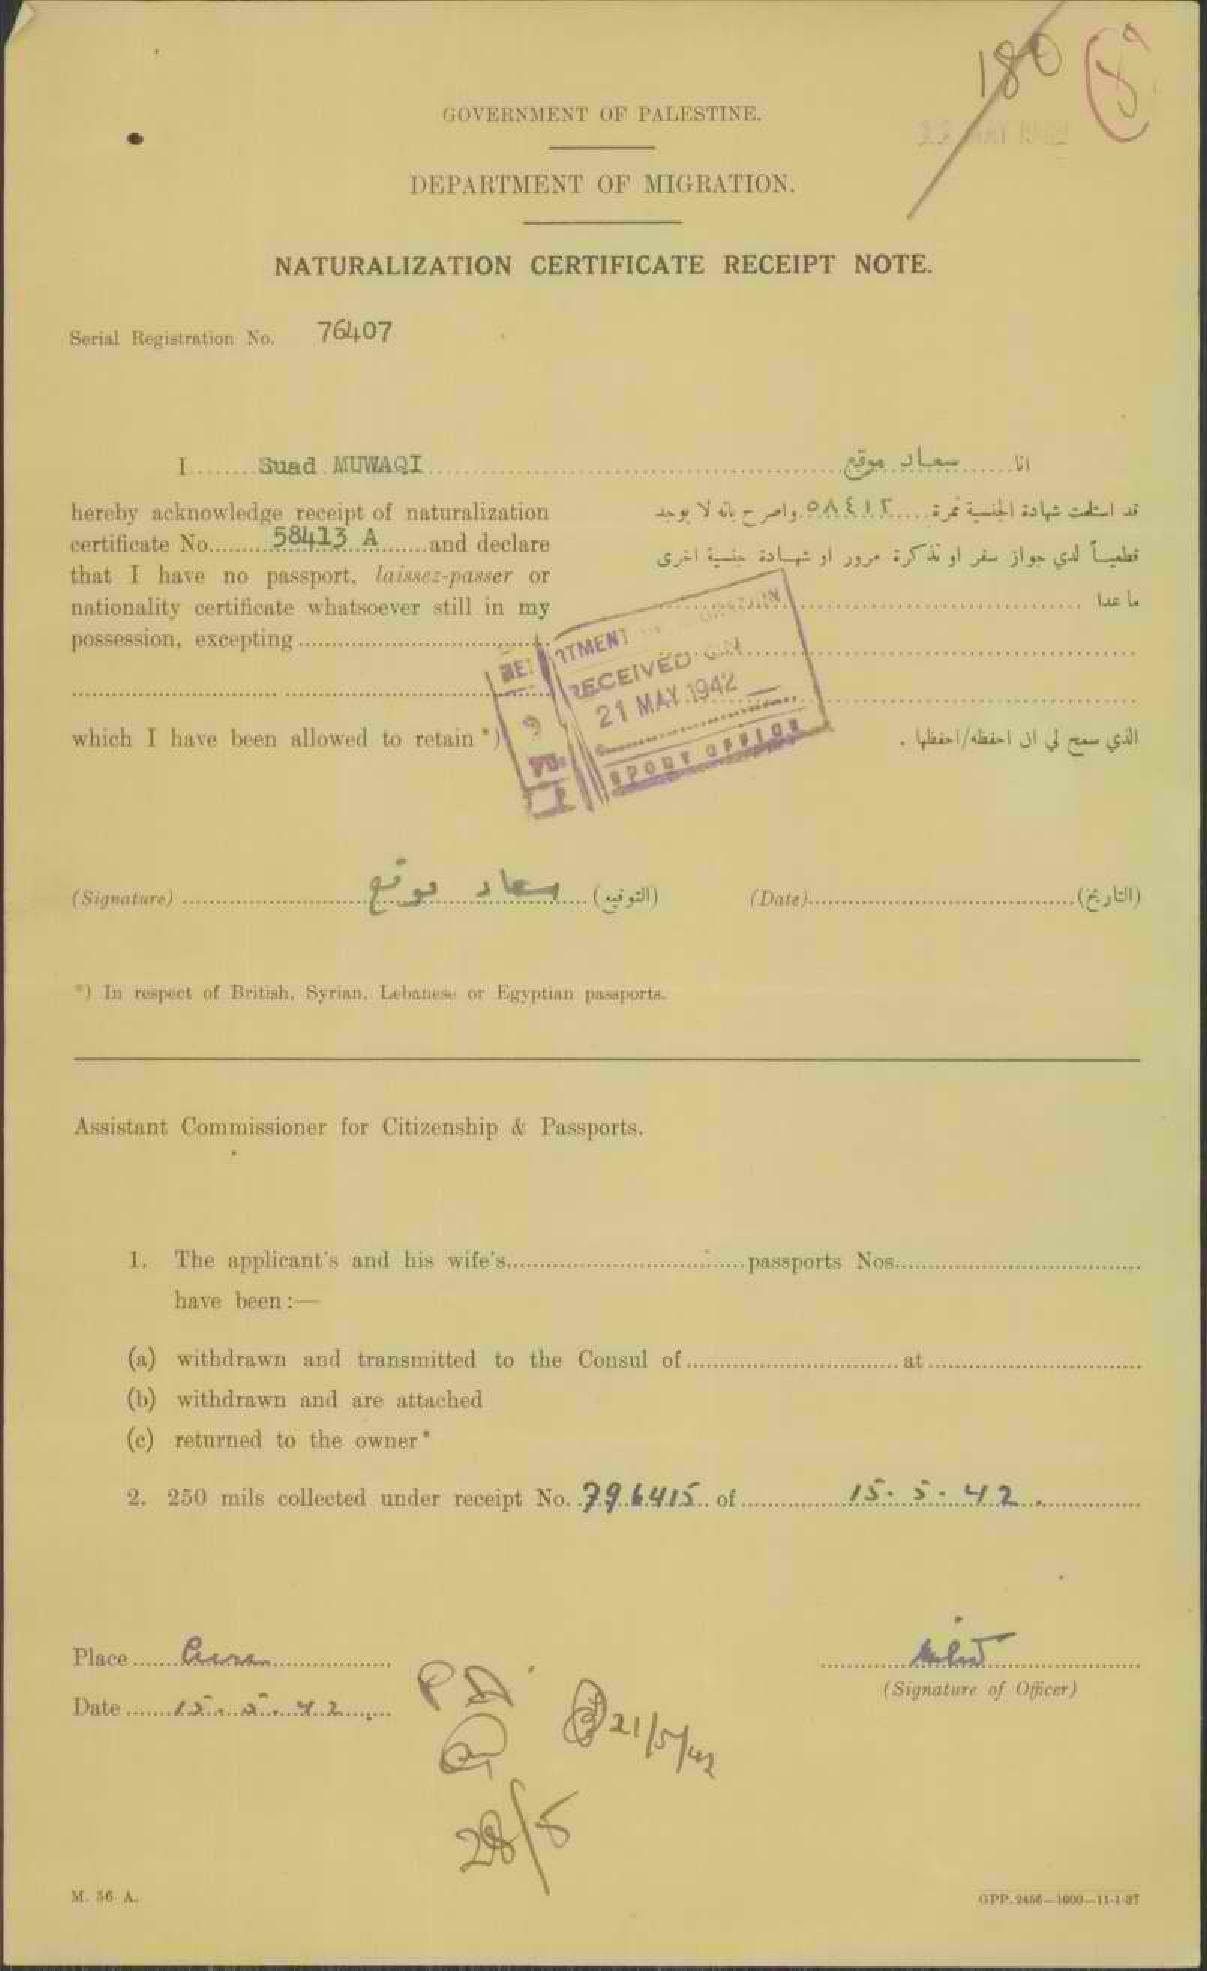 180
8
GOVERNMENT OF PALESTINE.
22 MAY 1942
DEPARTMENT OF MIGRATION.
NATURALIZATION CERTIFICATE RECEIPT NOTE.
Serial Registration No. 76407
I Suad MUWAQI
hereby acknowledge receipt of naturalization
certificate No. 58413 A and declare
that I have no passport, laissez-passer or
nationality certificate whatsoever still in my
possession, excepting
which I have been allowed to retain *)
انا سعاد موقع
قد استلمت شهادة الجنسية نمرة ٥٨٤١٣ واصرح بانه لا يوجد
قطعياً لدي جواز سفر او تذكرة مرور او شهادة جنسية اخرى
ما عدا
الذي سمح لي ان احفظه/احفظها .
RECEIVED ON
21 MAY 1942
(Signature) سعاد موقع (التوقيع) (Date) (التاريخ)
*) In respect of British, Syrian, Lebanese or Egyptian passports.
Assistant Commissioner for Citizenship & Passports.
1. The applicant's and his wife's passports Nos.
have been :—
(a) withdrawn and transmitted to the Consul of at
(b) withdrawn and are attached
(c) returned to the owner*
2. 250 mils collected under receipt No. 796415 of 15.5.42.
Place
Date 15.5.42
(Signature of Officer)
21/5/42
28/5
M. 36 A.
GPP. 2456—1000—11-1-37